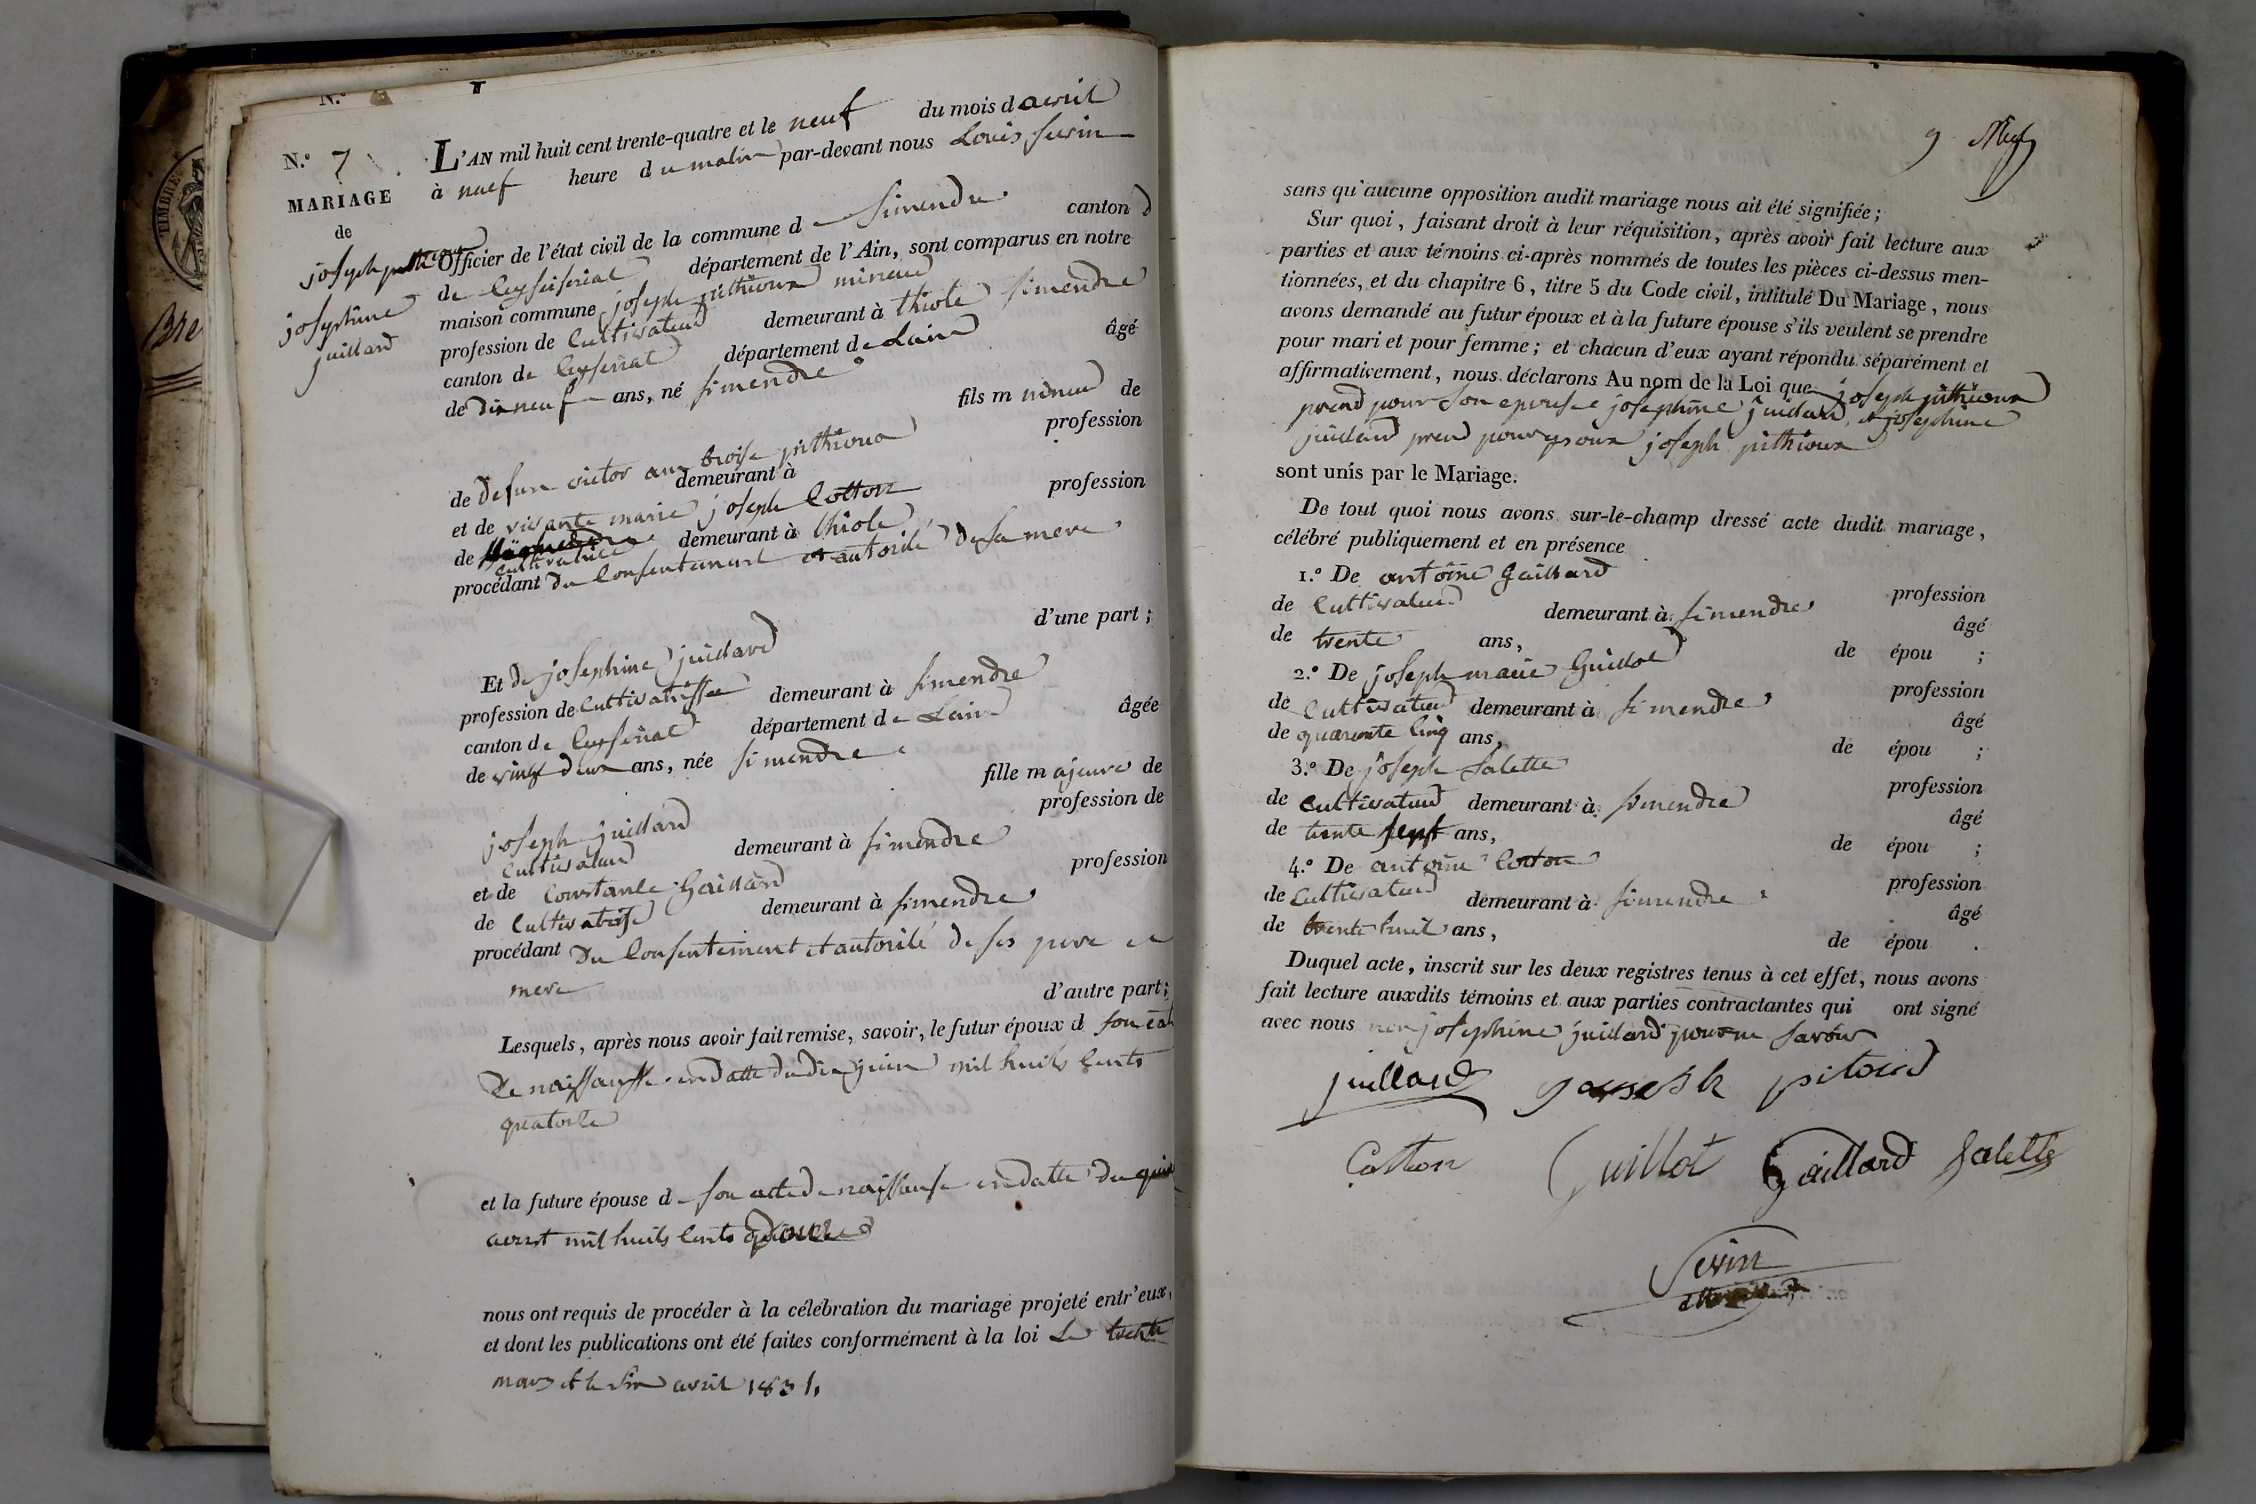 TIMBRE
Bre
N.º
N.º 7
MARIAGE
de
joseph
josephine
juillard
L'AN mil huit cent trente-quatre et le neuf du mois d avril
à neuf heure du matin par-devant nous Louis Sevin
Officier de l'état civil de la commune de Simendre canton d
de Ceyseiriat département de l'Ain, sont comparus en notre
maison commune joseph pithioux mineur
profession de Cultivateur demeurant à thiole Simendre
canton de Ceyseriat département de Lain âgé
de Dixneuf ans, né Simendre
fils m ineur de
de Defun victor anbroise pithioux profession
demeurant à
et de vivante marie joseph Cotton profession
de cultivatrice demeurant à thiole
procédant du Consentement et autorité de sa mere
d'une part ;
Et de josephine juillard
profession de Cultivatrisse demeurant à Simendre
canton de Ceyseriat département de Lain âgée
de vingt deux ans, née Simendre
fille m ajeure de
joseph juillard profession de
Cultivateur demeurant à Simendre
et de Constance Gaillard profession
de Cultivatrise demeurant à Simendre
procédant du Consentement et autorité de ses pere et
mere d'autre part ;
Lesquels, après nous avoir fait remise, savoir, le futur époux d son
De naissansse en datte du dix juin mil huits Cents
quatorse
et la future épouse de son acte de naissanse en datte du
aoust mil huits Cents
nous ont requis de procéder à la célébration du mariage projeté entr'eux,
et dont les publications ont été faites conformément à la loi Le trente
mars et le six avril 1834
9 Neuf
sans qu'aucune opposition audit mariage nous ait été signifiée ;
Sur quoi, faisant droit à leur réquisition, après avoir fait lecture aux
parties et aux témoins ci-après nommés de toutes les pièces ci-dessus men-
tionnées, et du chapitre 6, titre 5 du Code civil, intitulé Du Mariage, nous
avons demandé au futur époux et à la future épouse s'ils veulent se prendre
pour mari et pour femme ; et chacun d'eux ayant répondu séparément et
affirmativement, nous déclarons Au nom de la Loi que joseph pithioux
prend pour Son epouse josephine juillard, et josephine
juillard prend pour epoux joseph pithioux
sont unis par le Mariage.
De tout quoi nous avons sur-le-champ dressé acte dudit mariage,
célébré publiquement et en présence
1.º De antoine Gaillard
profession
de Cultivateur demeurant à Simendre
âgé
de trente ans, de épou ;
2.º De joseph marie Guillot
profession
de Cultivateur demeurant à Simendre
âgé
de quarente Cinq ans, de épou ;
3.º De joseph Salette
profession
de Cultivateur demeurant à Simendre
âgé
de trente sept ans, de épou ;
4.º De antoine Cotton
profession
de Cultivateur demeurant à Simendre
âgé
de trente huit ans, de épou .
Duquel acte, inscrit sur les deux registres tenus à cet effet, nous avons
fait lecture auxdits témoins et aux parties contractantes qui ont signé
avec nous non josephine juillard pour ne Savoir
juillard joseph pitoird
Cotton Guillot Gaillard Salette
Sevin